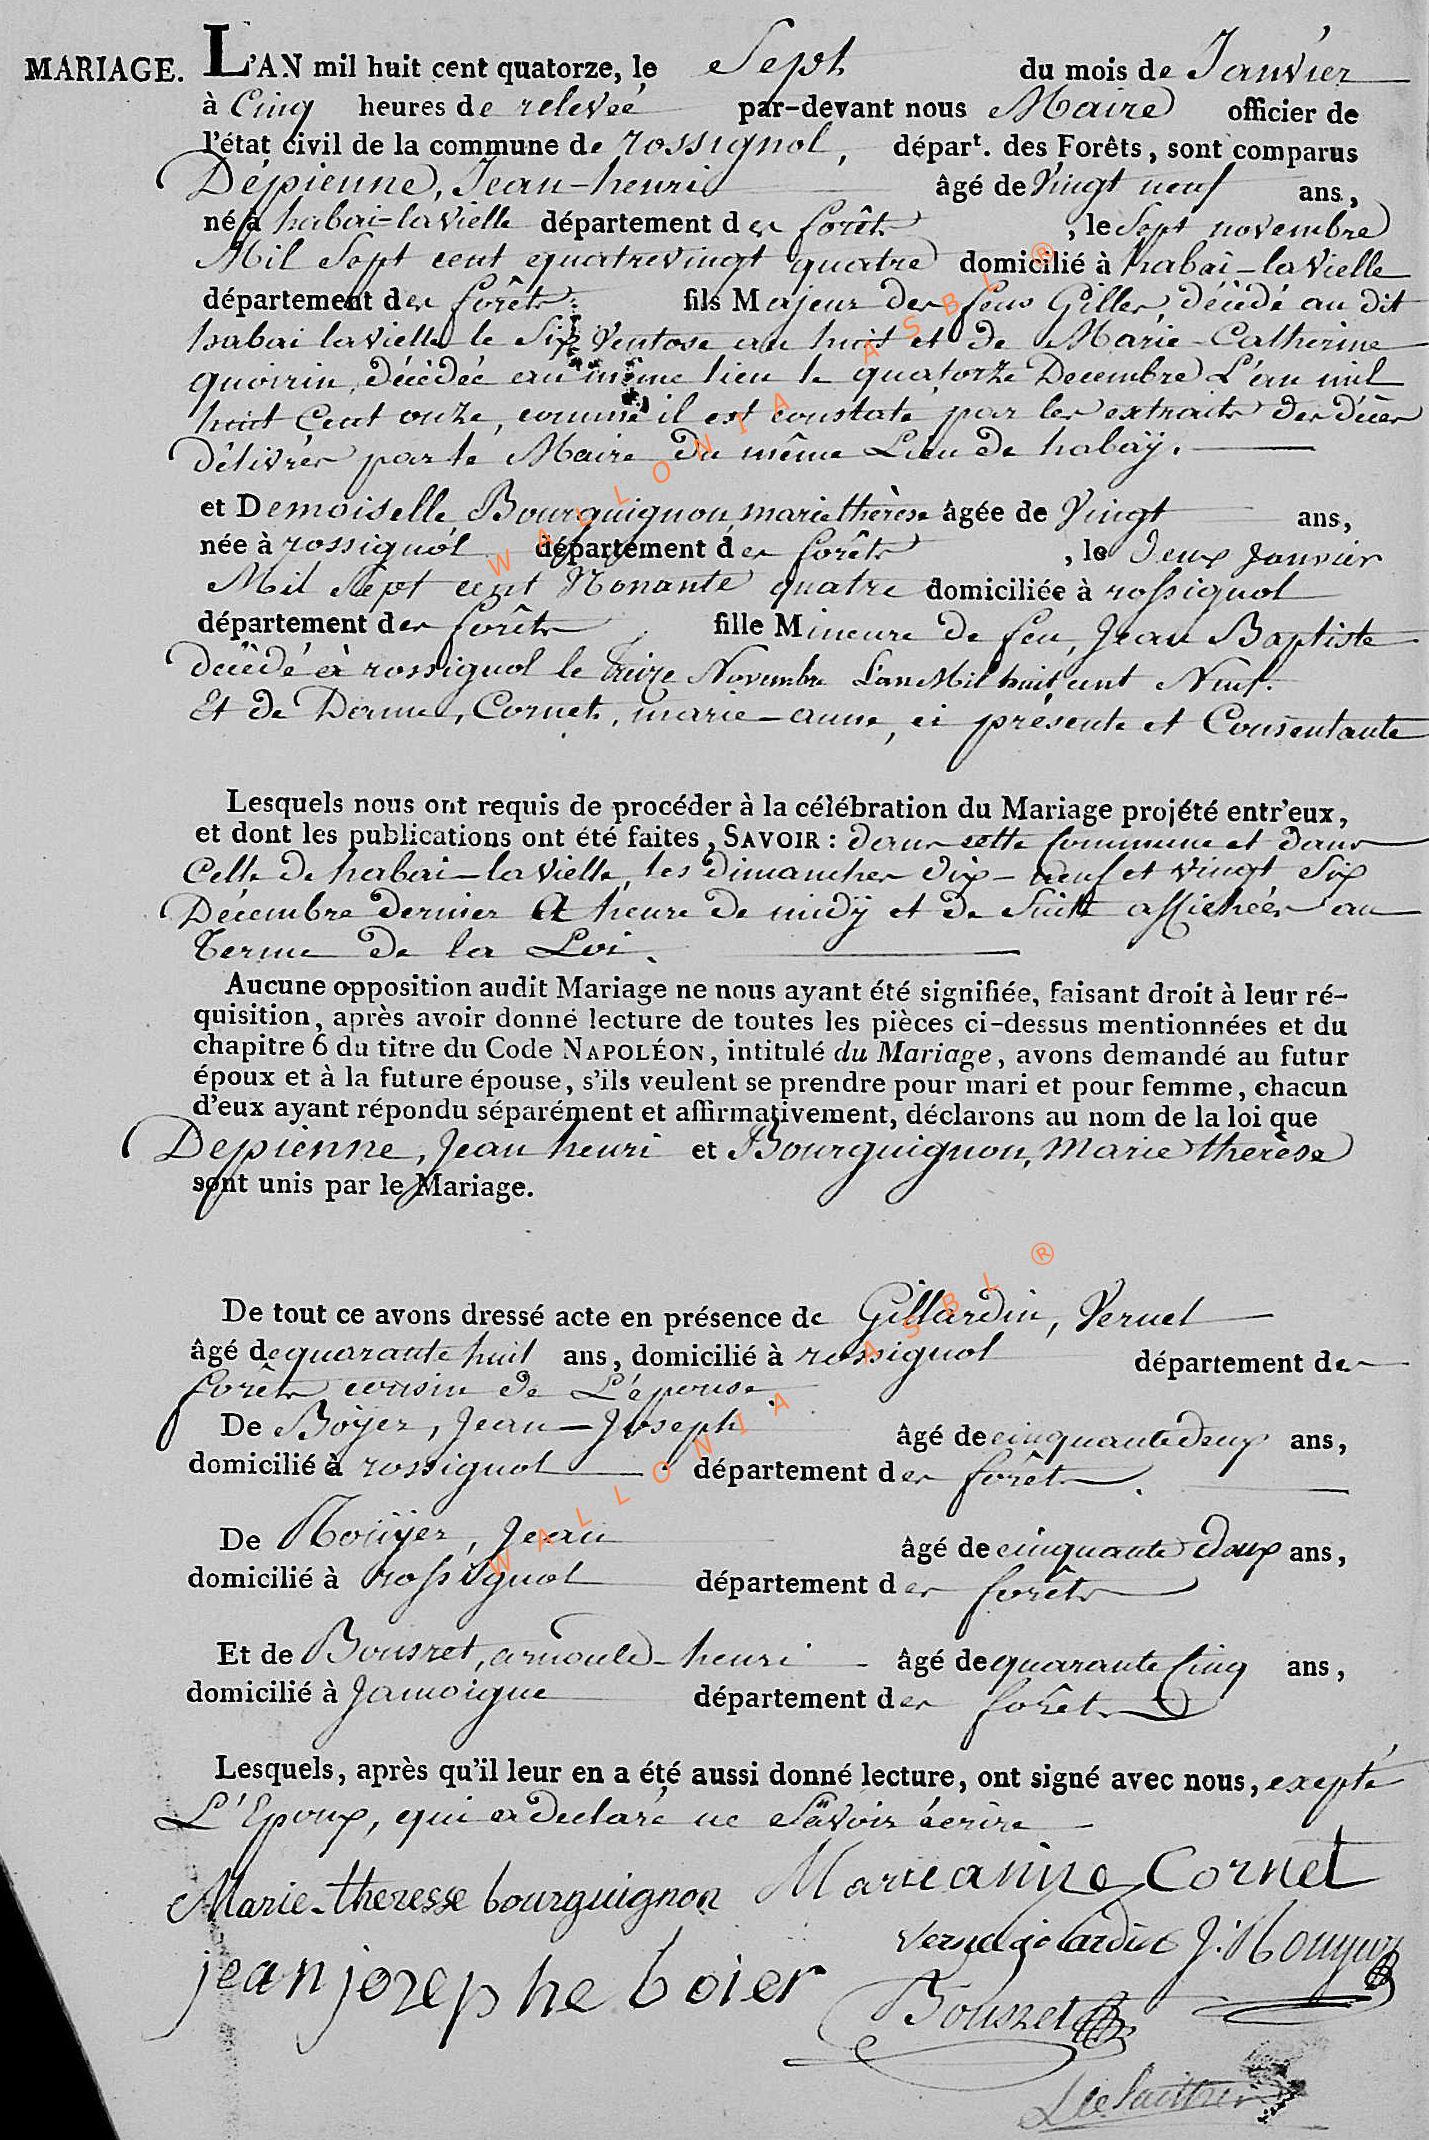 MARIAGE. L'AN mil huit cent quatorze, le Sept du mois de Janvier
à Cinq heures de relevée par-devant nous Maire officier de
l'état civil de la commune de rossignol, départ. des Forêts, sont comparus
Dépienne, Jean-henri âgé de Vingt neuf ans,
né à habai-lavielle département des forêts, le Sept novembre
Mil Sept cent quatrevingt quatre domicilié à habai-lavielle
département des forêts fils Majeur des feus Gilles, décédé au dit
habai lavielle le Six Ventose an huit et de Marie-Catherine
quoirin, décédée au même lieu le quatorze Decembre L'an mil
huit Cent onze, comme il est constaté par les extraits des décès
Délivrés par le Maire du même Lieu de habaÿ.
et Demoiselle Bourguignon, marie thérèse âgée de Vingt ans,
née à rossignol département des forêts, le Deux Janvier
Mil Sept cent Nonante quatre domiciliée à rossignol
département des forêts fille Mineure de feu, Jean Baptiste
decédé à rossignol le treize Novembre L'an Mil huit cent Neuf.
Et de Dame, Cornet, marie-anne, ci présente et Consentante
Lesquels nous ont requis de procéder à la célébration du Mariage projété entr'eux,
et dont les publications ont été faites, SAVOIR : dans cette Commune et dans
Celle de habai-lavielle, les dimanches dix-neuf et vingt Six
Décembre dernier A heure de midÿ et de Suitte affichées au
Terme de la Loi.
Aucune opposition audit Mariage ne nous ayant été signifiée, faisant droit à leur ré-
quisition, après avoir donné lecture de toutes les pièces ci-dessus mentionnées et du
chapitre 6 du titre du Code NAPOLÉON, intitulé du Mariage, avons demandé au futur
époux et à la future épouse, s'ils veulent se prendre pour mari et pour femme, chacun
d'eux ayant répondu séparément et affirmativement, déclarons au nom de la loi que
Depienne, Jean henri et Bourguignon, Marie therèse
sont unis par le Mariage.
De tout ce avons dressé acte en présence de Gillardin, Vernel
âgé de quarante huit ans, domicilié à rossignol département des
forêts cousin de L'épouse
De Boÿer, Jean-Joseph âgé de cinquante deux ans,
domicilié à rossignol département des forêts.
De Rouÿer, Jean âgé de cinquante deux ans,
domicilié à rossignol département des forêts
Et de Bousret, arnould-henri âgé de quarante Cinq ans,
domicilié à Jamoigne département des forêts
Lesquels, après qu'il leur en a été aussi donné lecture, ont signé avec nous, exepté
L'Epoux, qui a declaré ne Savoir écrire
Marie-theresse bourguignon Marieanne Cornet
vernel gilardin J. Rouyer
jean jozephe boier
Bousret
WALLONIA ASBL ®
WALLONIA ASBL ®